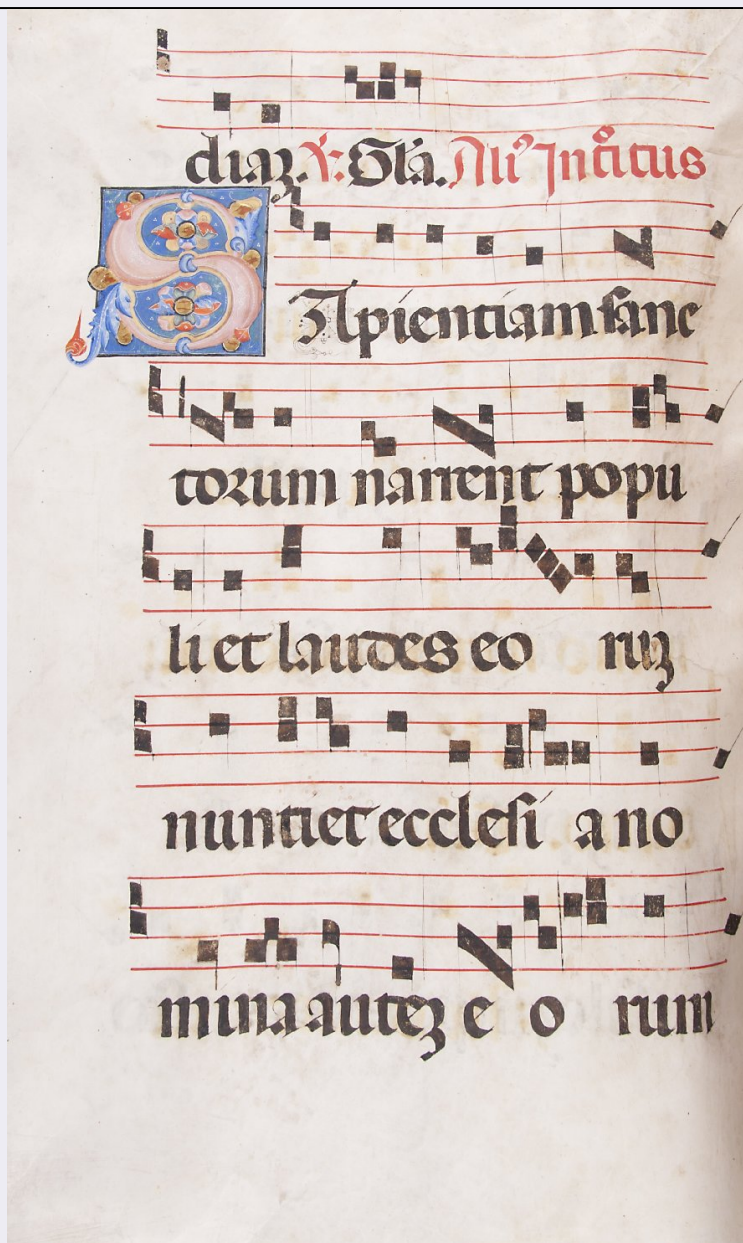 diaꝫ. ℣. Gl'a. Ali' Intitus
SApientiam sanc
torum narrent popu
li et laudes eo ruꝫ
nuntiet ecclesi a no
mina auteꝫ e o rum